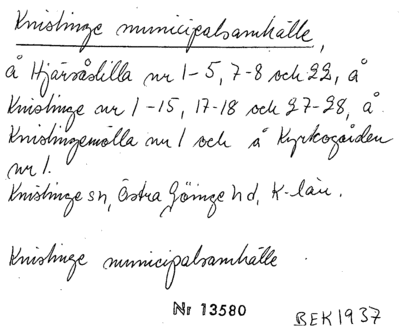 Knislinge municipalsamhälle,
å Hjärsåslilla nr 1-5, 7-8 och 22, å
Knislinge nr 1-15, 17-18 och 27-28, å
Knislingemölla nr 1 och å Kyrkogården
nr 1.
Knislinge sn, Östra Göinge hd, K-län.
Knislinge municipalsamhälle
Nr 13580
BEK 1937